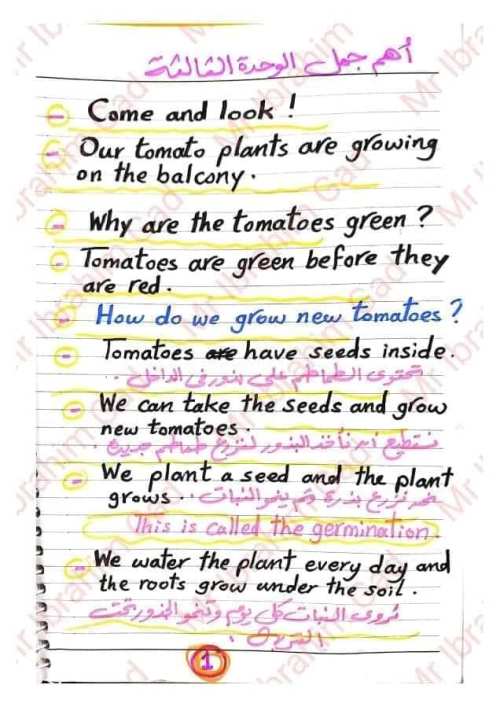 أهم جمل الوحدة الثالثة
- Come and look !
- Our tomato plants are growing
on the balcony .
- Why are the tomatoes green ?
- Tomatoes are green before they
are red .
- How do we grow new tomatoes ?
- Tomatoes are have seeds inside .
تحتوى الطماطم على بذور فى الداخل .
- We can take the seeds and grow
new tomatoes .
نستطيع أن نأخذ البذور لنزرع طماطم جديدة .
- We plant a seed and the plant
grows .
نحن نزرع بذرة وثم ينمو النبات
This is called the germination .
- We water the plant every day and
the roots grow under the soil .
نروى النبات كل يوم وتنمو الجذور تحت
التربة .
1
Mr Ibrahim Gad